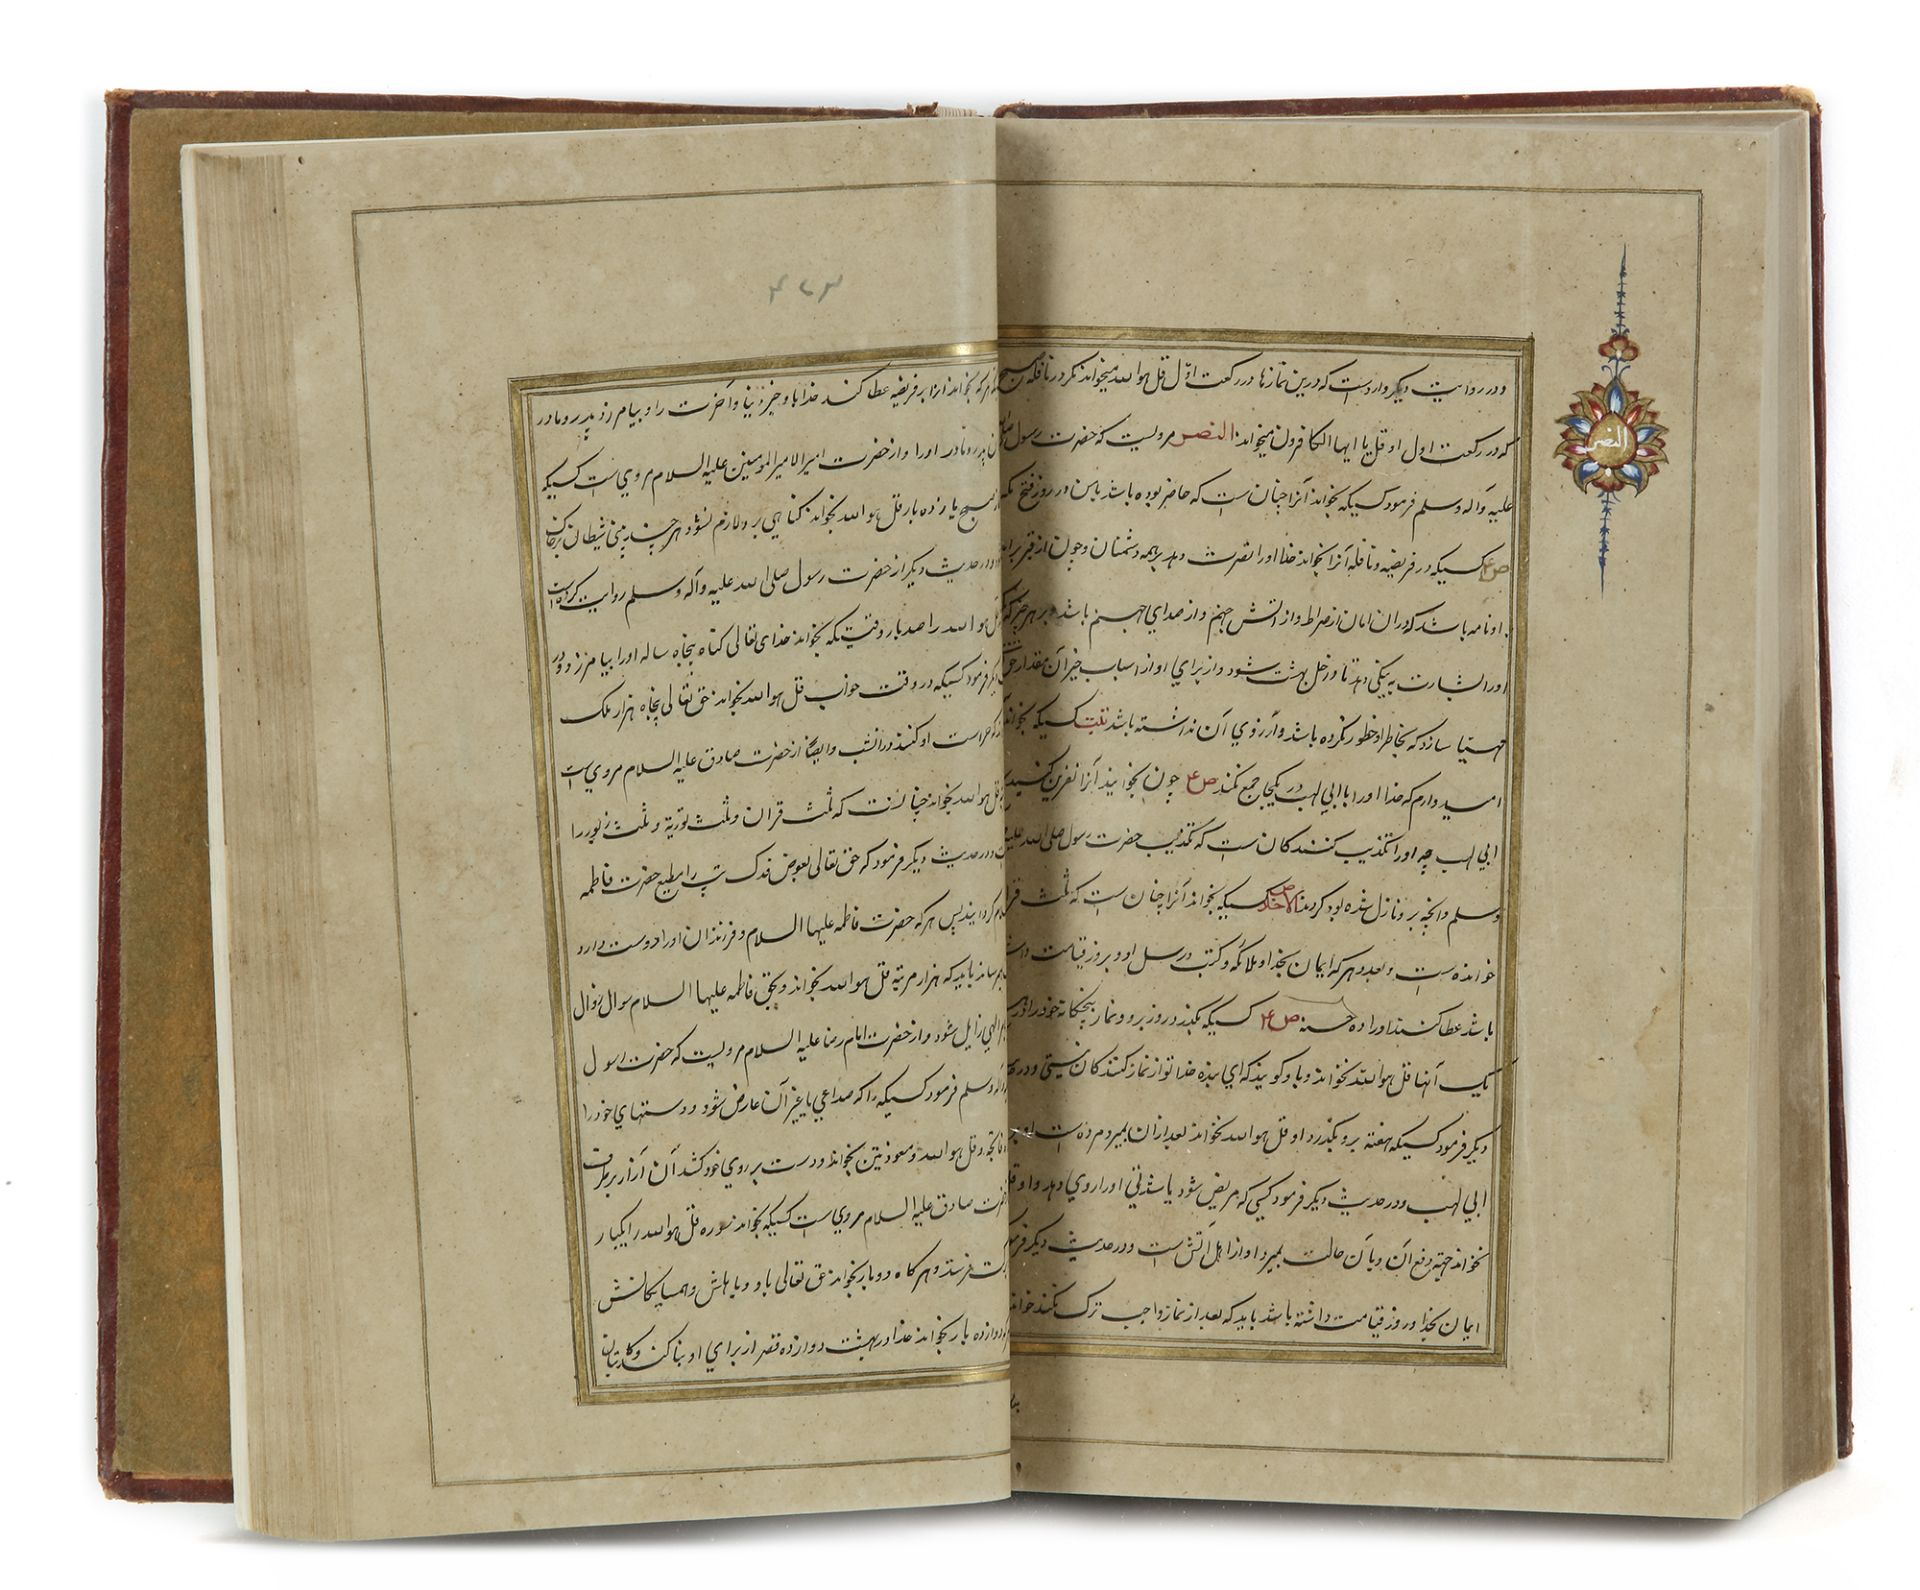 و در روایت دیگر وارد است که درین نمازها در رکعت اول قل هو الله میخواند مکر در نافله صبح
که در رکعت اول او قل یا ایها الکافرون میخواند النصر مرویست که حضرت رسول صلی
علیه و آله و سلم فرمود کسیکه بخواند آنرا چنان است که حاضر بوده باشد با من در روز فتح مکه
ص۴ کسیکه در فریضه و نافله آنرا بخواند خدا او را نصرت دهد بر همه دشمنان و چون از قبر
او نامه باشد که در ان امان از صراط و از اتش جهنم و از صدای جهنم باشد و بر هر چیز که
او را بشارت به نیکی دهد تا داخل بهشت شود و از برای او از اسباب خیر آن مقدار حق
مهیا سازد که بخاطر او خطور نکرده باشد و آرزوی آن نداشته باشد تبت کسیکه بخواند
امیدوارم که خدا او را با ابی لهب در یکجا جمع نکند ص۴ چون بخوانید آنرا نفرین کنید
ابی لهب چه او از تکذیب کنندکان است که تکذیب حضرت رسول صلی الله علیه
وسلم و آنچه برو نازل شده بود کردند الاخلاص کسیکه بخواند آنرا چنان است که ثلث قران
خوانده است و بعدد هر که ایمان بخدا و ملائکه و کتب و رسل او و بروز قیامت داشته
باشد عطا کنند او را ده حسنه ص۴ کسیکه یکروز برو و نماز پنجکانه خود را در هیچ
یک آنها قل هو الله نخواند باو کویند که ای بنده خدا تو از نماز کنندکان نیستی و در
دیکر فرمود کسیکه هفته برو بکذرد و او قل هو الله نخواند بعد از ان بمیرد مرده است او بر
ابی لهب و در حدیث دیکر فرمود کسی که مریض شود یا شدتی او را روی دهد و او قل
نخواند جهة رفع آن و با آن حالت بمیرد او از اهل آتش است و در حدیث دیکر فرمود
ایمان بخدا و روز قیامت داشته باشد باید که بعد از نماز واجب ترک نکند خواندن
النصر
۴۶۳
هر که بخواند انرا بر فریضه عطا کند خدا باو خیر دنیا و آخرت را و بیامرزد پدر و مادر
پدر و مادر او را و از حضرت امیر الامیر المومنین علیه السلام مروی است کسیکه
صبح یازده بار قل هو الله بخواند کناهی برو لازم نشود هر چند بینی شیطان بر خاک
و در حدیث دیکر از حضرت رسول صلی الله علیه و آله و سلم روایت کرده است
قل هو الله را صد بار وقتیکه بخواند خدای تعالی کناه پنجاه ساله او را بیامرزد و در
دیکر فرمود کسیکه در وقت خواب قل هو الله بخواند حق تعالی پنجاه هزار ملک
که حراست او کنند در انشب و ایضا از حضرت صادق علیه السلام مروی است
قل هو الله بخواند چنانست که ثلث قران و ثلث توریة و ثلث زبور را
و در حدیث دیکر فرمود که حق تعالی بعوض فدک تب را مطیع حضرت فاطمه
کردانید پس هر که حضرت فاطمه علیها السلام و فرزندان او را دوست دارد
باید که هزار مرتبه قل هو الله بخواند و بحق فاطمه علیها السلام سوال زوال
الهی زایل شود و از حضرت امام رضا علیه السلام مرویست که حضرت رسول
و آله وسلم فرمود کسیکه را که صداعی یا غیر آن عارض شود و دستهای خود را
فاتحه و قل هو الله و معوذتین بخواند و دست بر روی خود کشد آن آزار برطرف
حضرت صادق علیه السلام مروی است کسیکه بخواند سوره قل هو الله را یکبار
فرستد و هر کاه دو بار بخواند حق تعالی باو و باهلش و همسایکانش
دوازده بار بخواند خدا در بهشت دوازده قصر از برای او بنا کند و کاتبان